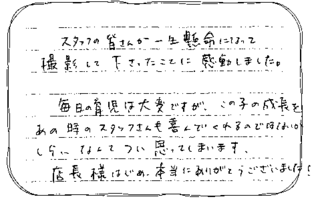 スタッフの皆さんが一生懸命になって
撮影して下さったことに感動しました。
毎日の育児は大変ですが、この子の成長を
あの時のスタッフさんも喜んでくれるのではないか
しら…なんてつい思ってしまいます。
店長様はじめ、本当にありがとうございました!